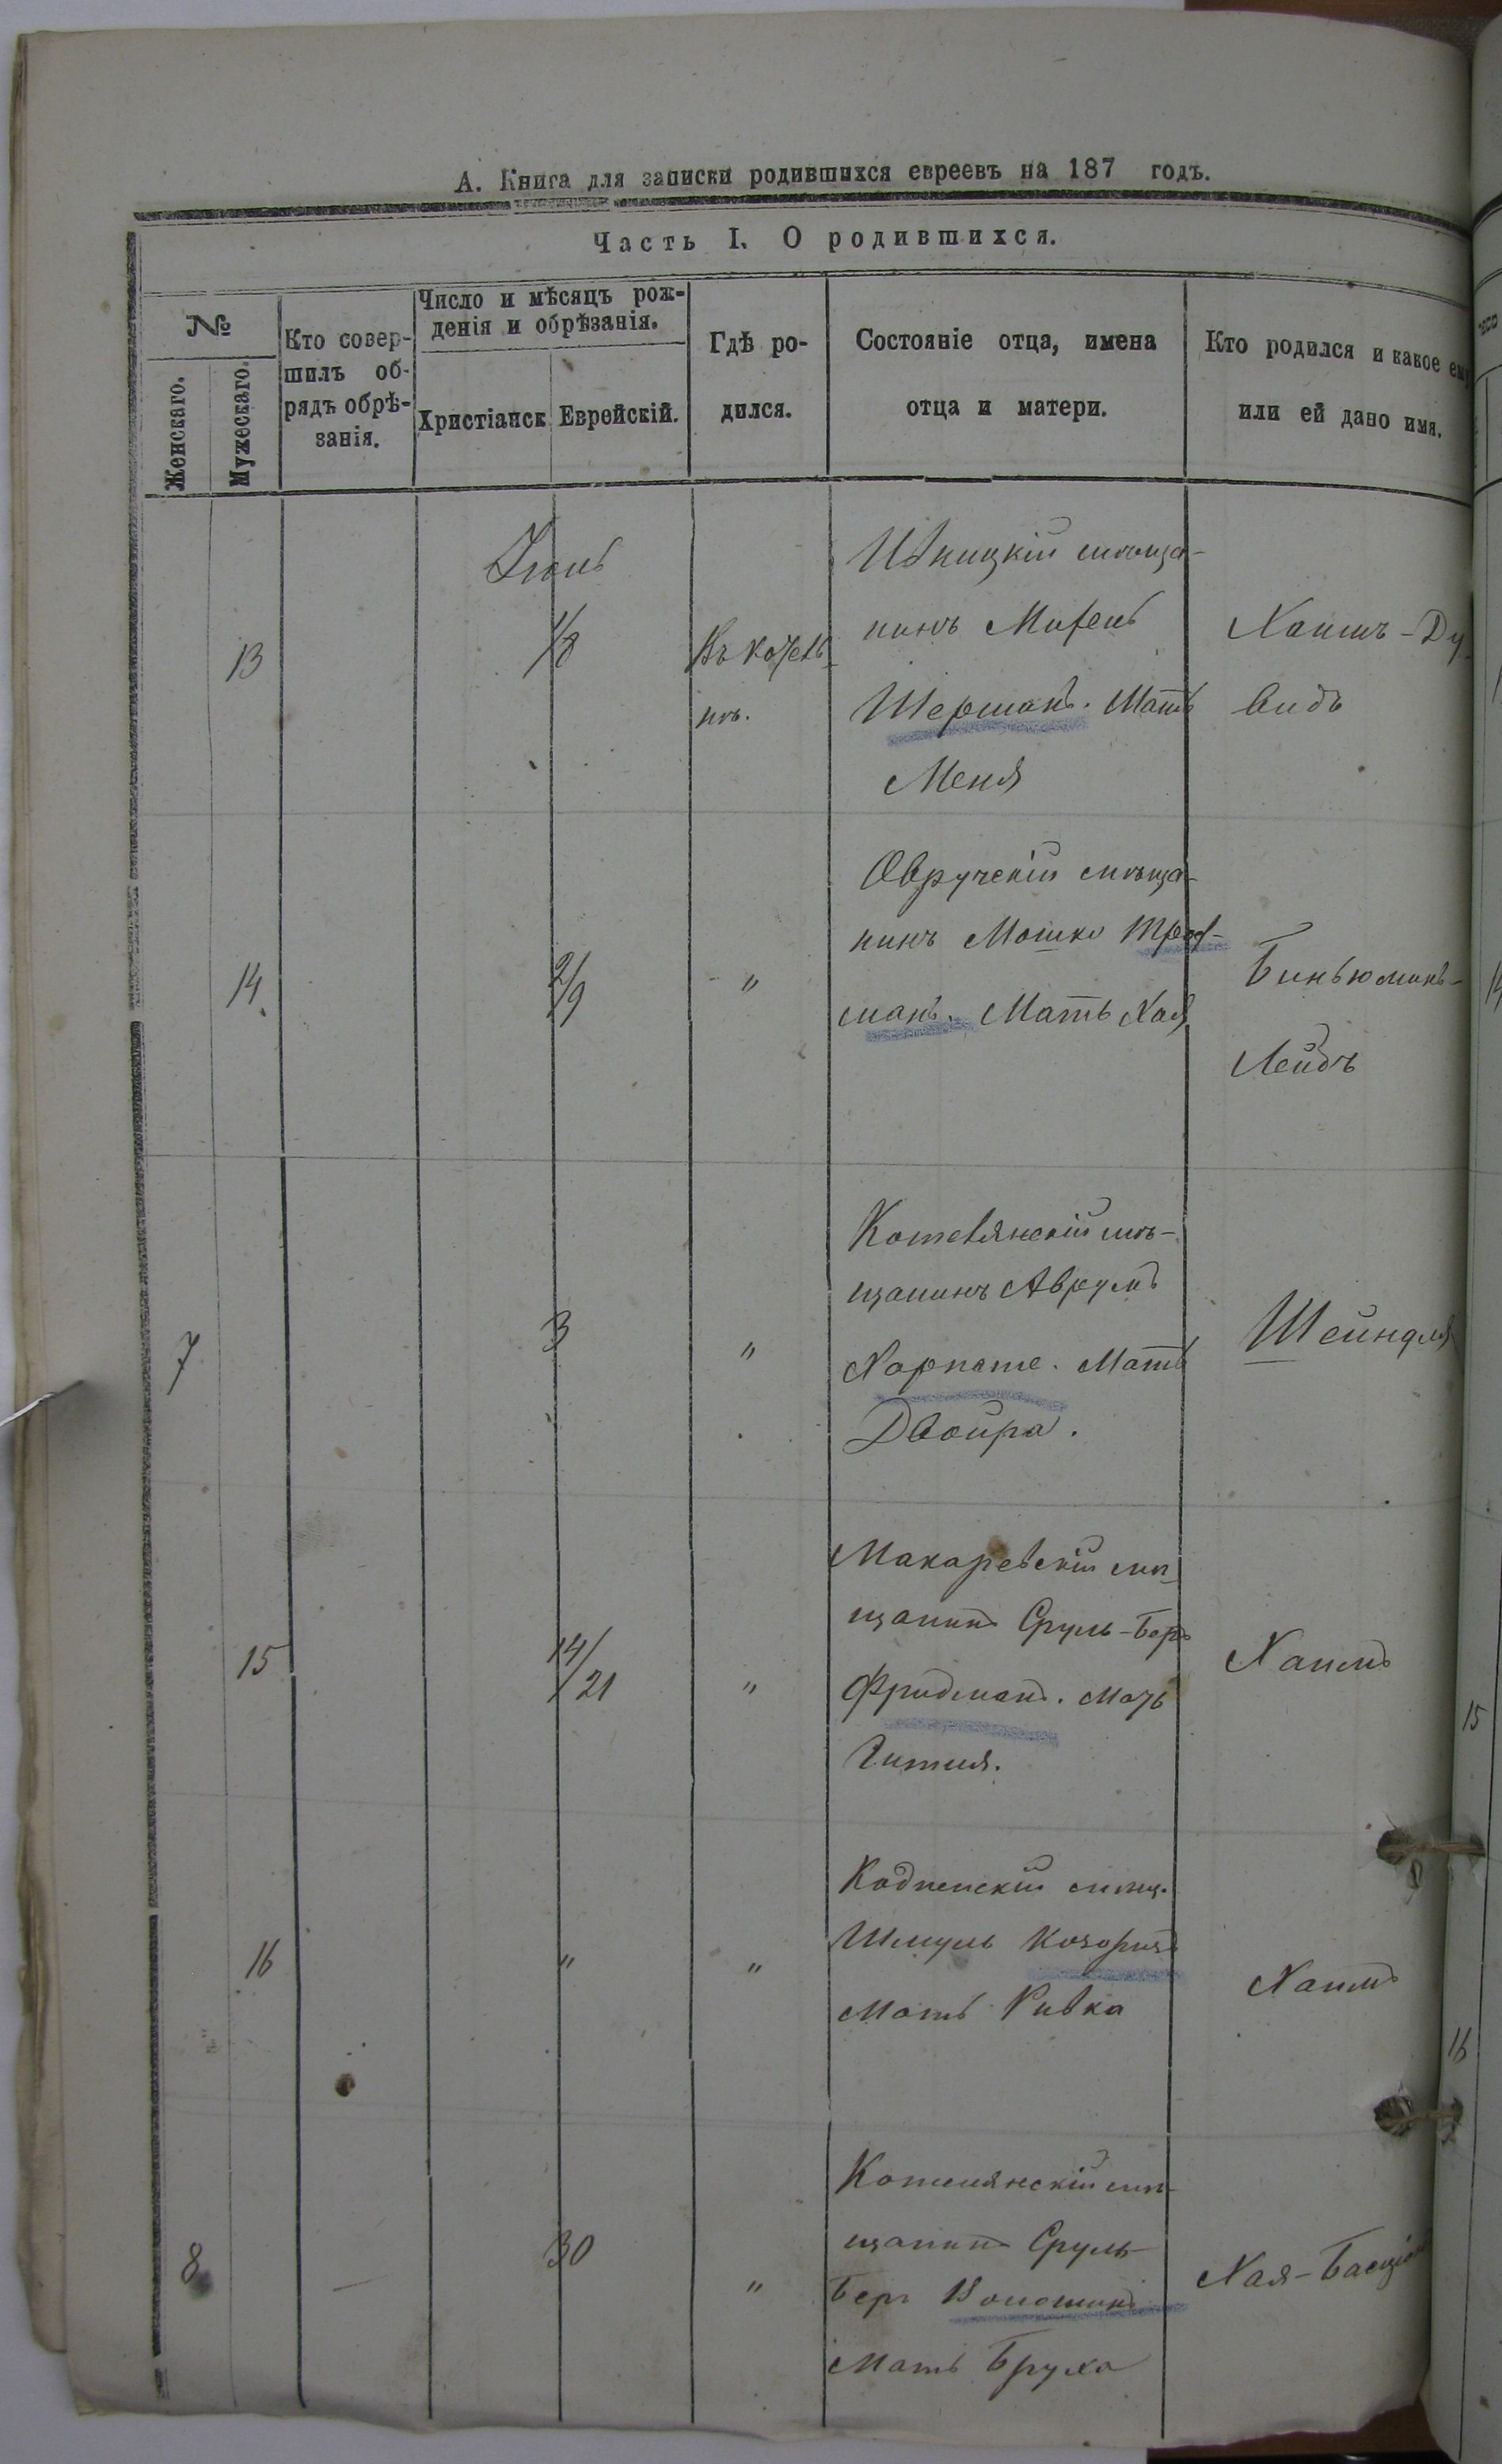 А. Книга для записки родившихся евреевъ на 187 годъ.
Часть I. О родившихся.
№
Женскаго.
Мужескаго.
Кто совер-
шилъ об-
рядъ обрѣ-
занія.
Число и мѣсяцъ рож-
денія и обрѣзанія.
Христіанск
Еврейскій.
Гдѣ ро-
дился.
Состояніе отца, имена
отца и матери.
Кто родился и какое ему
или ей дано имя.
Іюнь
13
1/8
Въ Котель
нѣ.
мѣща-
нинъ
Шерманъ. Мать
Меня
Хаимъ-Ду
видъ
14
2/9
"
Овручскій мѣща-
нинъ Мошко
манъ. Мать Хая
Биньюминъ-
Лейбъ
7
3
"
мѣ-
щанинъ Аврумъ
Мать
Двойра.
Шейндля
15
14/21
"
Макаревскій мѣ-
щанинъ Сруль-Беръ
Фридманъ. Мать
Гитля.
Хаимъ
16
"
"
Кодненскій мѣщ.
Шмуль
Мать Ривка
Хаимъ
8
30
"
Котелянскій мѣ-
щанинъ Сруль
Беръ Волошинъ
Мать Бруха
Хая-
15
16